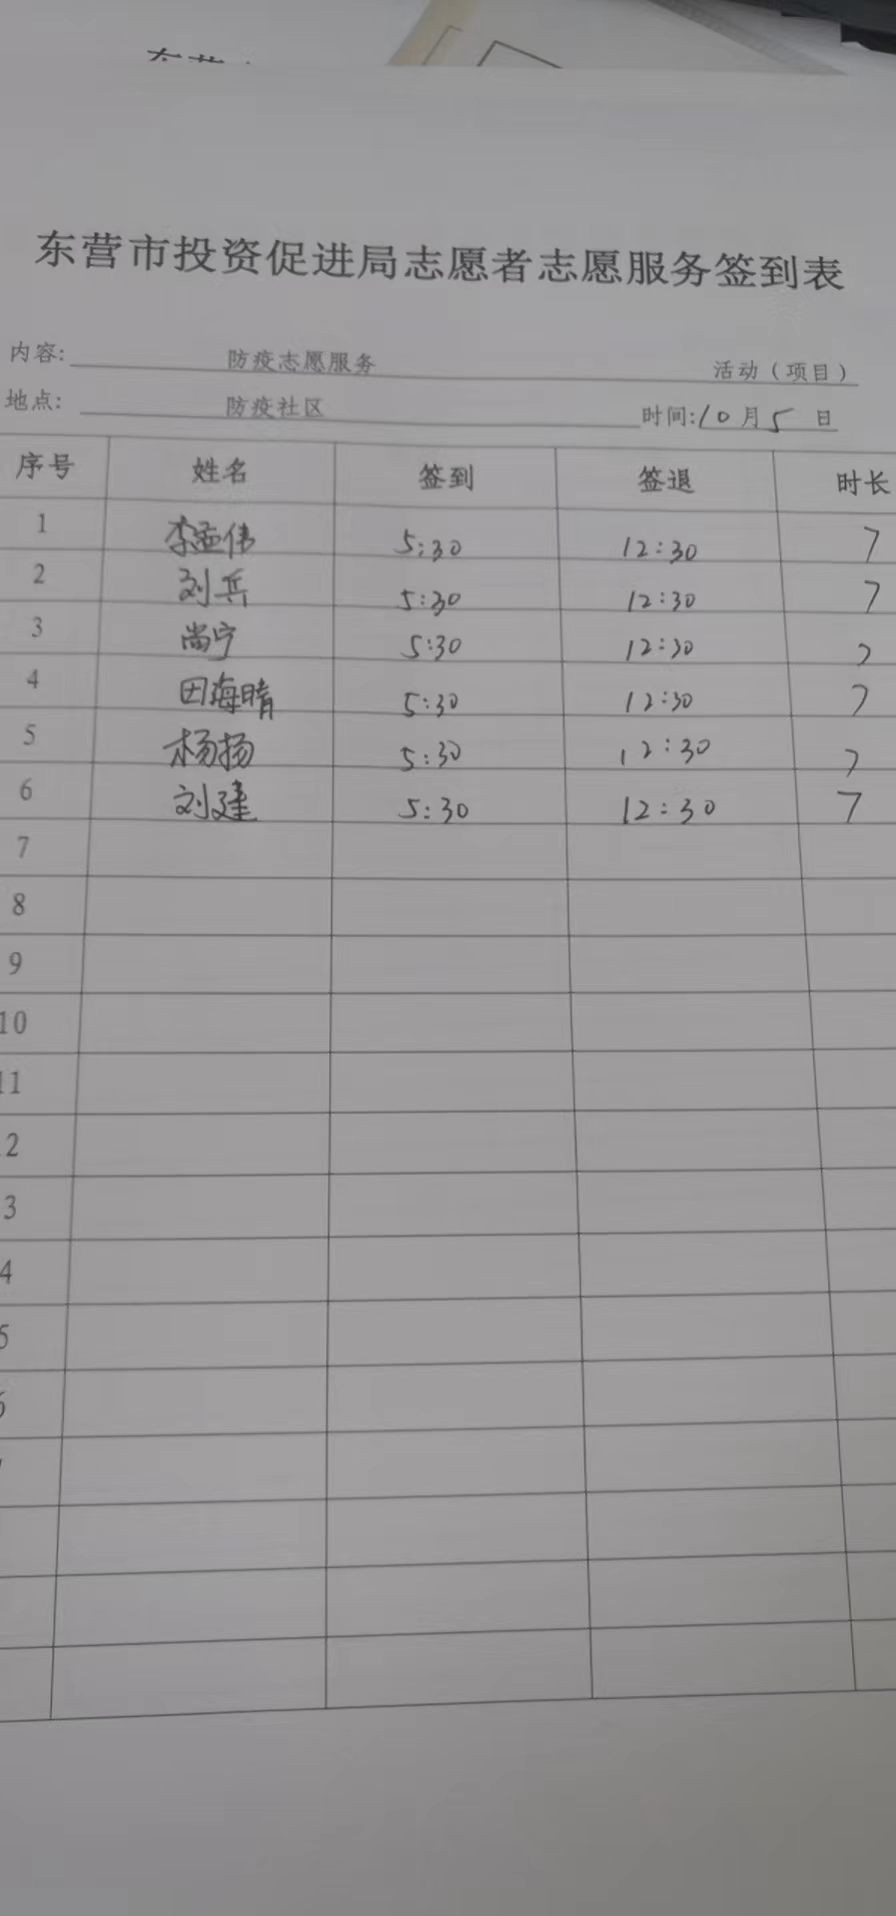 东营市投资促进局志愿者志愿服务签到表
内容: 防疫志愿服务 活动（项目）
地点: 防疫社区 时间:10月5日
序号 姓名 签到 签退 时长
1 李孟伟 5:30 12:30 7
2 刘兵 5:30 12:30 7
3 尚宁 5:30 12:30 7
4 田海晴 5:30 12:30 7
5 杨扬 5:30 12:30 7
6 刘建 5:30 12:30 7
7
8
9
10
11
2
3
4
5
6